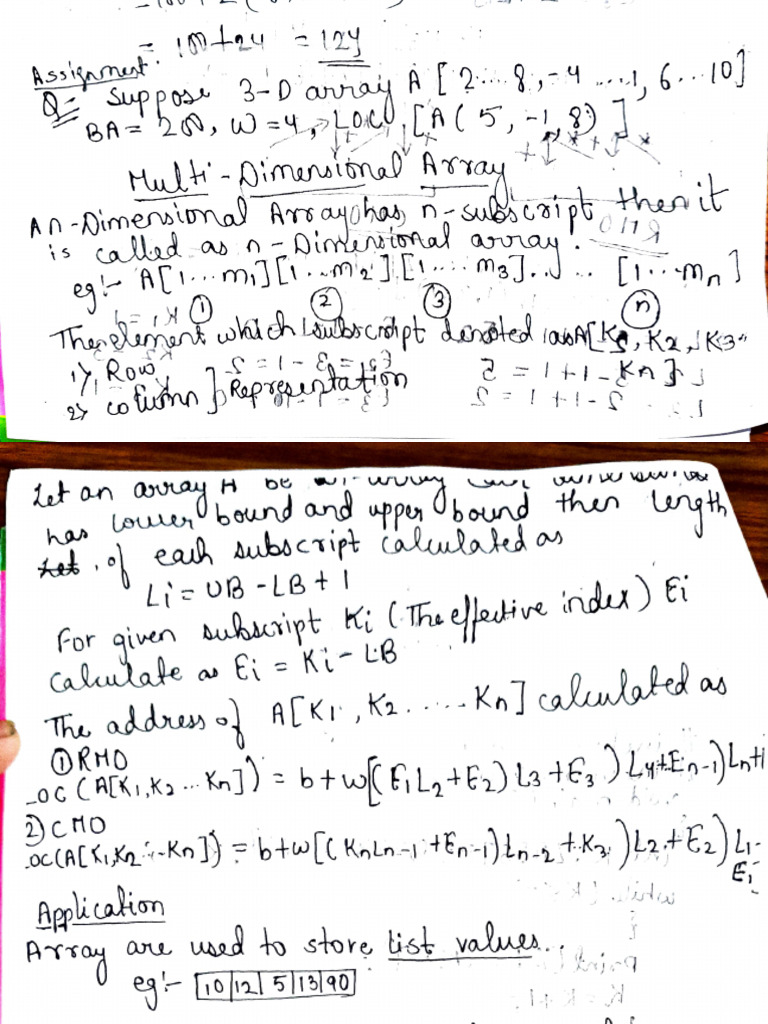 = 100+24 = 124
Assignment.
Q:- Suppose 3-D array A [ 2...8, -4 ...1, 6...10]
BA = 200, W = 4, LOC [A ( 5, -1, 8) ]
Multi-Dimensional Array
An n-Dimensional Array has n-subscript then it
is called as n-Dimensional array.
eg:- A[1...m1][1...m2][1....m3]..... [1...mn]
① ② ③ ⓝ
The element which subscript denoted as A[K1, K2, K3..
Kn]
1) Row
2) column ] Representation
Let an array A be
has lower bound and upper bound then length
of each subscript calculated as
Li = UB - LB + 1
For given subscript Ki (The effective index) Ei
calculate as Ei = Ki - LB
The address of A[K1, K2.....Kn] calculated as
① RMO
LOC (A[K1,K2...Kn]) = b+w[(E1L2+E2) L3+E3) L4+En-1) Ln+
2) CMO
LOC(A[K1,K2...Kn]) = b+w[(KnLn-1+En-1) Ln-2 + K3) L2+E2) L1-
E1
Application
Array are used to store list values.
eg:- 10 12 5 13 90